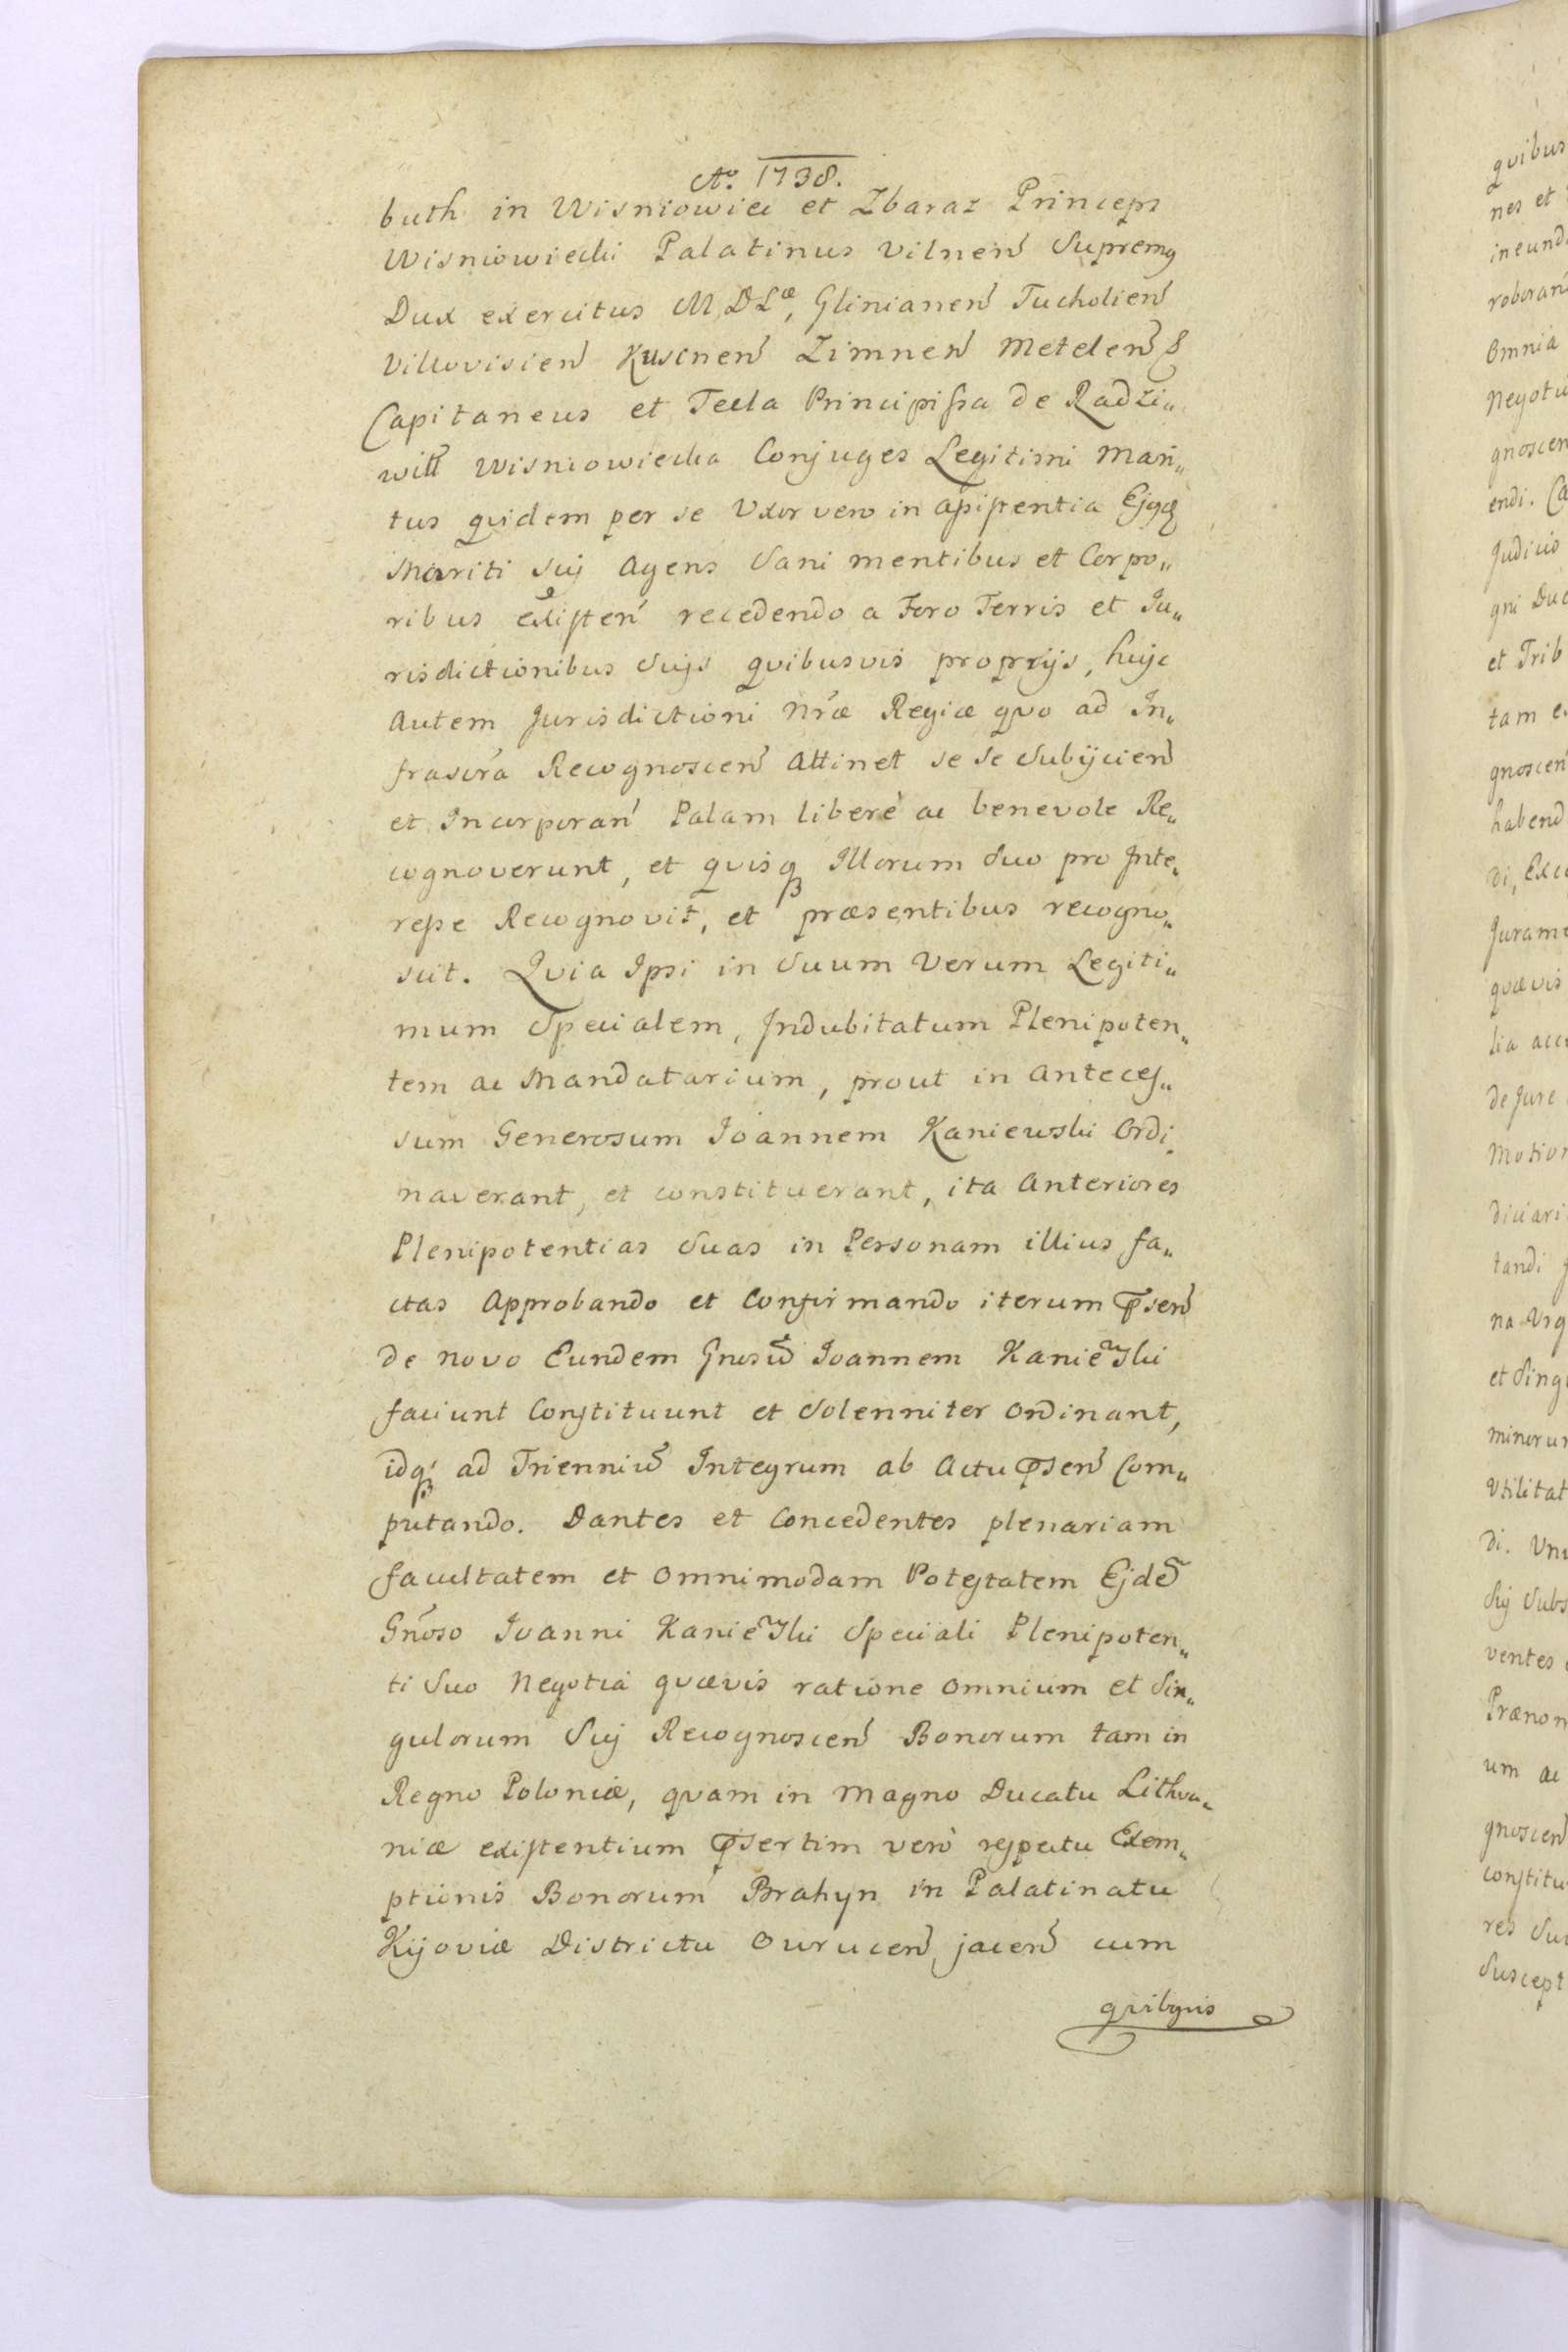 Ao. 1738.
buth in Wisniowiec et Zbaraz Princeps
Wisniowiecki Palatinus Vilnen Supremq
Dux exercitus M. D. Læ, Glinianen Tucholien
Vilkovisien Kuscnen Zimnen Metelen &
Capitaneus et Tecla Principissa de Radzi„
will Wisniowiecka Conjuges Legitimi Mari„
tus quidem per se Uxor vero in assistentia Ejqd
Mariti Suj Agens Sani mentibus et Corpo„
ribus existen recedendo a Foro Terris et Ju„
risdictionibus Sujs quibusvis proprijs, hujc
Autem Jurisdictioni Nræ Regiæ quo ad In„
frascra Recognoscen Attinet se se Subijcien
et Incorporan Palam liberè ac benevole Re„
cognoverunt, et quisq Illorum Suo pro Inte„
resse Recognovit, et præsentibus recogno„
scit. Quia Ipsi in Suum Verum Legiti„
mum Specialem, Indubitatum Plenipoten„
tem ac Mandatarium, prout in Anteces„
sum Generosum Joannem Kaniewski Ordi„
naverant, et constituerant, ita Anteriores
Plenipotentias Suas in Personam illius fa„
ctas Approbando et Confirmando iterum psen
de novo Eundem Gnosu Joannem Kanieski
faciunt Constituunt et Solenniter Ordinant,
idq ad Trienniu Integrum ab Actu psen Com„
putando. Dantes et Concedentes plenariam
facultatem et Omnimodam Potestatem Ejde
Gnoso Joanni Kanieski Speciali Plenipoten„
ti Suo Negotia quævis ratione Omnium et Sin„
gulorum Suj Recognoscen Bonorum tam in
Regno Poloniæ, quam in Magno Ducatu Lithva„
niæ existentium psertim verò respectu Exem„
ptionis Bonorum Brahyn in Palatinatu
Kijoviæ Districtu Ovrucen jacen cum
quibqvis
quibus
nes et
ineund
roboran
Omnia
Negotu
gnoscen
endi. Ca
Judicio
gni Duc
et Trib
tam e
gnoscen
habend
di, Exc
Jurame
quævis
lia acc
de Jure
Motion
diciari
tandi J
na Vig
et Sing
minorum
Utilitat
di. Un
Suj Subs
ventes
Prænom
um ac
gnoscen
constitu
res Su
Suscept